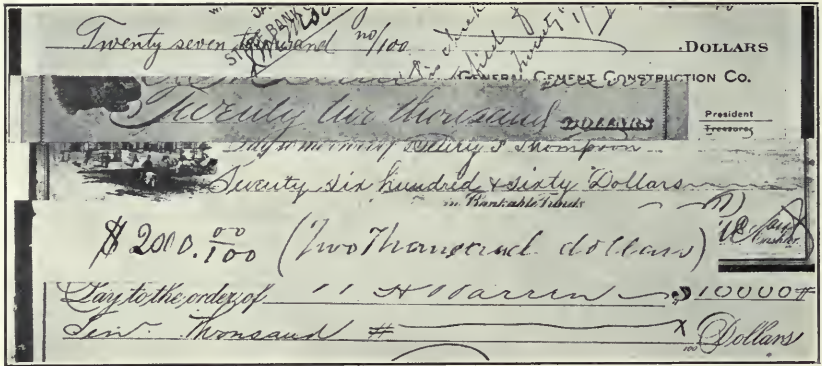 STATE BANK
Twenty seven thousand no/100 DOLLARS
GENERAL CEMENT CONSTRUCTION CO.
Twenty two thousand DOLLARS
President
Treasurer
Pay to the order of Thompson
Seventy six hundred & sixty Dollars
in Bankable Funds
$ 2000.00/100 (Two Thousand dollars)
Cashier.
Pay to the order of H Warren $ 10000 #
Ten Thousand # x/100 Dollars